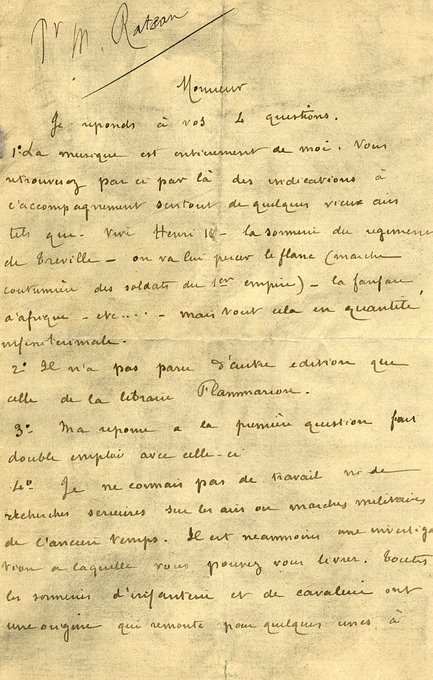 Pr M. Rateau
Monsieur
Je reponds à vos 4 questions.
1º La musique est entierement de moi. Vous
retrouverez par ci par là des indications à
l'accompagnement surtout de quelques vieux airs
tels que - Vive Henri IV - la sonnerie du regiment
de Treville - on va lui percer le flanc (marche
coutumière des soldats du 1er empire) - la fanfare
d'afrique - etc.... - mais tout cela en quantité
infinitesimale.
2º Il n'a pas paru d'autre edition que
celle de la librairie Flammarion.
3º Ma reponse a la première question fait
double emploi avec celle-ci
4º Je ne connais pas de travail ni de
recherches serieuses sur les airs ou marches militaires
de l'ancien temps. Il est neanmoins une investiga
tion a laquelle vous pouvez vous livrer. Toutes
les sonneries d'infanterie et de cavalerie ont
une origine qui remonte pour quelques unes à